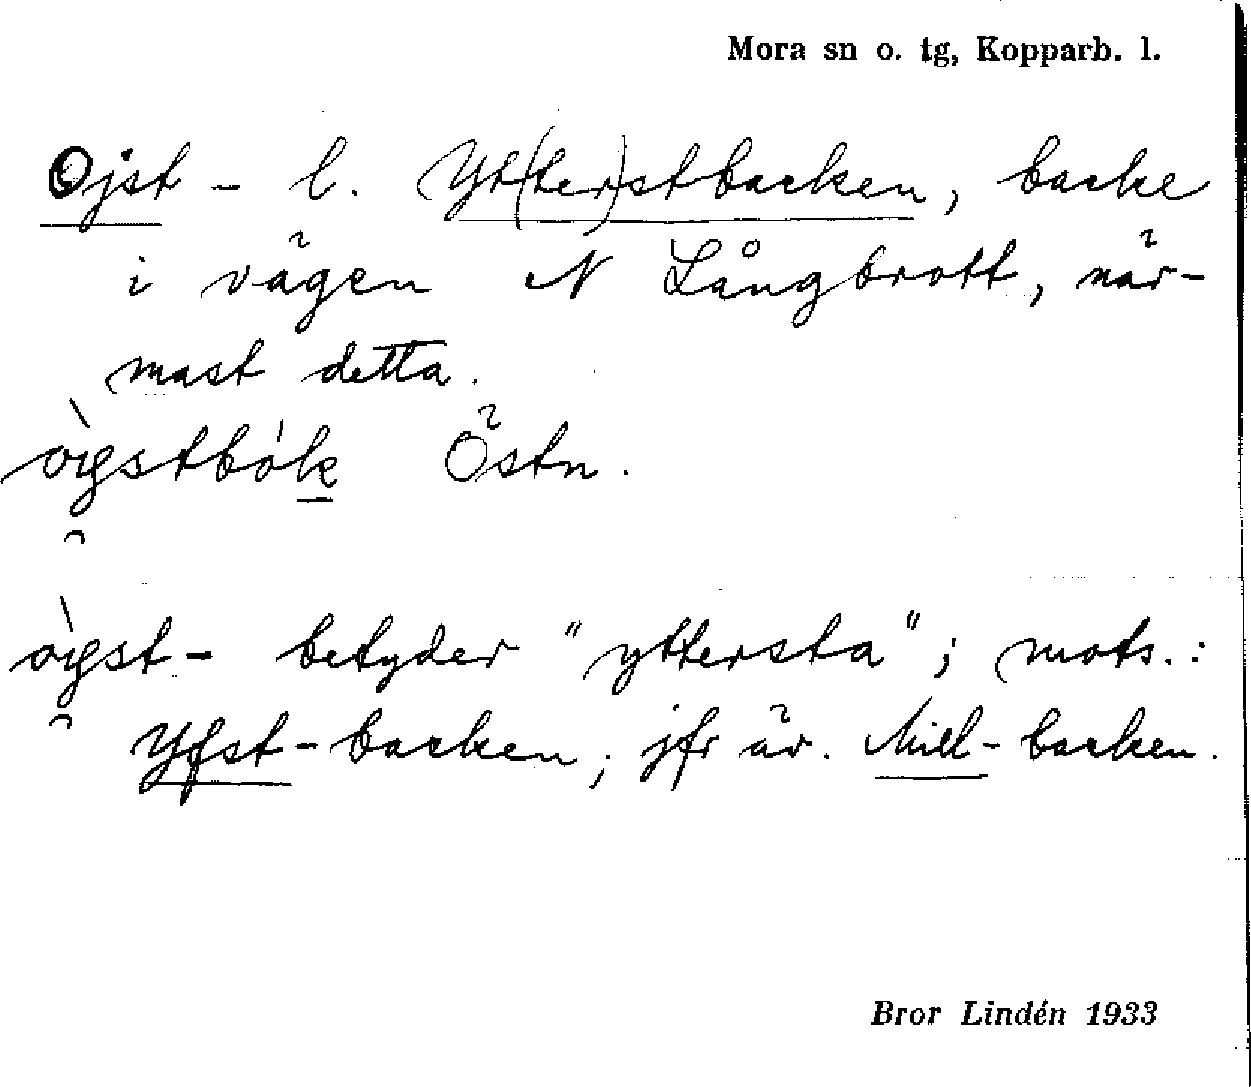 Mora sn o. tg, Kopparb. l.
Ojst- l. Yt(ter)stbacken, backe
i vägen N Långbrott, när-
mast detta.
Östn.
betyder "yttersta"; mots.:
Yfst-backen; jfr äv. Mill-backen.
Bror Lindén 1933